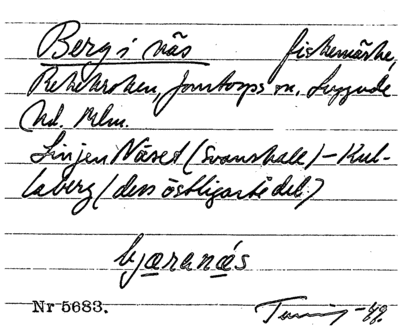 Berg i näs fiskemärke,
Rekekroken, Jonstorps sn, Luggude
hd. Mlm.
Linjen Näset (Svanshall) - Kul-
laberg (dess östligaste del.)
bjæranás
Nr 5683.
-49.